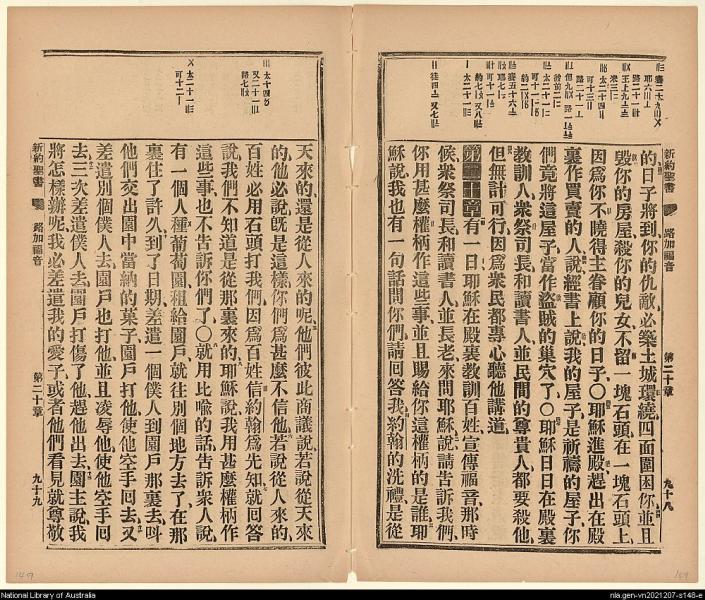 新約聖書
路加福音
第二十章
九十八
的日子將到你的仇敵必築土城環繞四面圍困你並且
毀你的房屋殺你的兒女不留一塊石頭在一塊石頭上
因爲你不曉得主眷顧你的日子〇耶穌進殿趕出在殿
裏作買賣的人說經書上說我的屋子是祈禱的屋子你
們竟將這屋子當作盜賊的巢穴了〇耶穌日日在殿裏
教訓人衆祭司長和讀書人並民間的尊貴人都要殺他
但無計可行因爲衆民都專心聽他講道
第二十章有一日耶穌在殿裏教訓百姓宣傳福音那時
候衆祭司長和讀書人並長老來問耶穌說請告訴我們
你用甚麼權柄作這些事並且賜給你這權柄的是誰耶
穌說我也有一句話問你們請回答我約翰的洗禮是從
天來的還是從人來的呢他們彼此商議說若說從天來
的他必說旣是這樣你們爲甚麼不信他若說從人來的
百姓必用石頭打我們因爲百姓信約翰爲先知就回答
說我們不知道是從那裏來的耶穌說我用甚麼權柄作
這些事也不告訴你們了〇就用比喩的話告訴衆人說
有一個人種葡萄園租給園戶就往別個地方去了在那
裏住了許久到了日期差遣一個僕人到園戶那裏去叫
他們交出園中當納的菓子園戶打他使他空手回去又
差遣別個僕人去園戶也打他並且凌辱他使他空手回
去三次差遣僕人去園戶打傷了他趕他出去園主說我
將怎樣辦呢我必差遣我的愛子或者他們看見就尊敬
新約聖書
路加福音
第二十章
九十九
National Library of Australia
nla.gen-vn2021207-s148-e